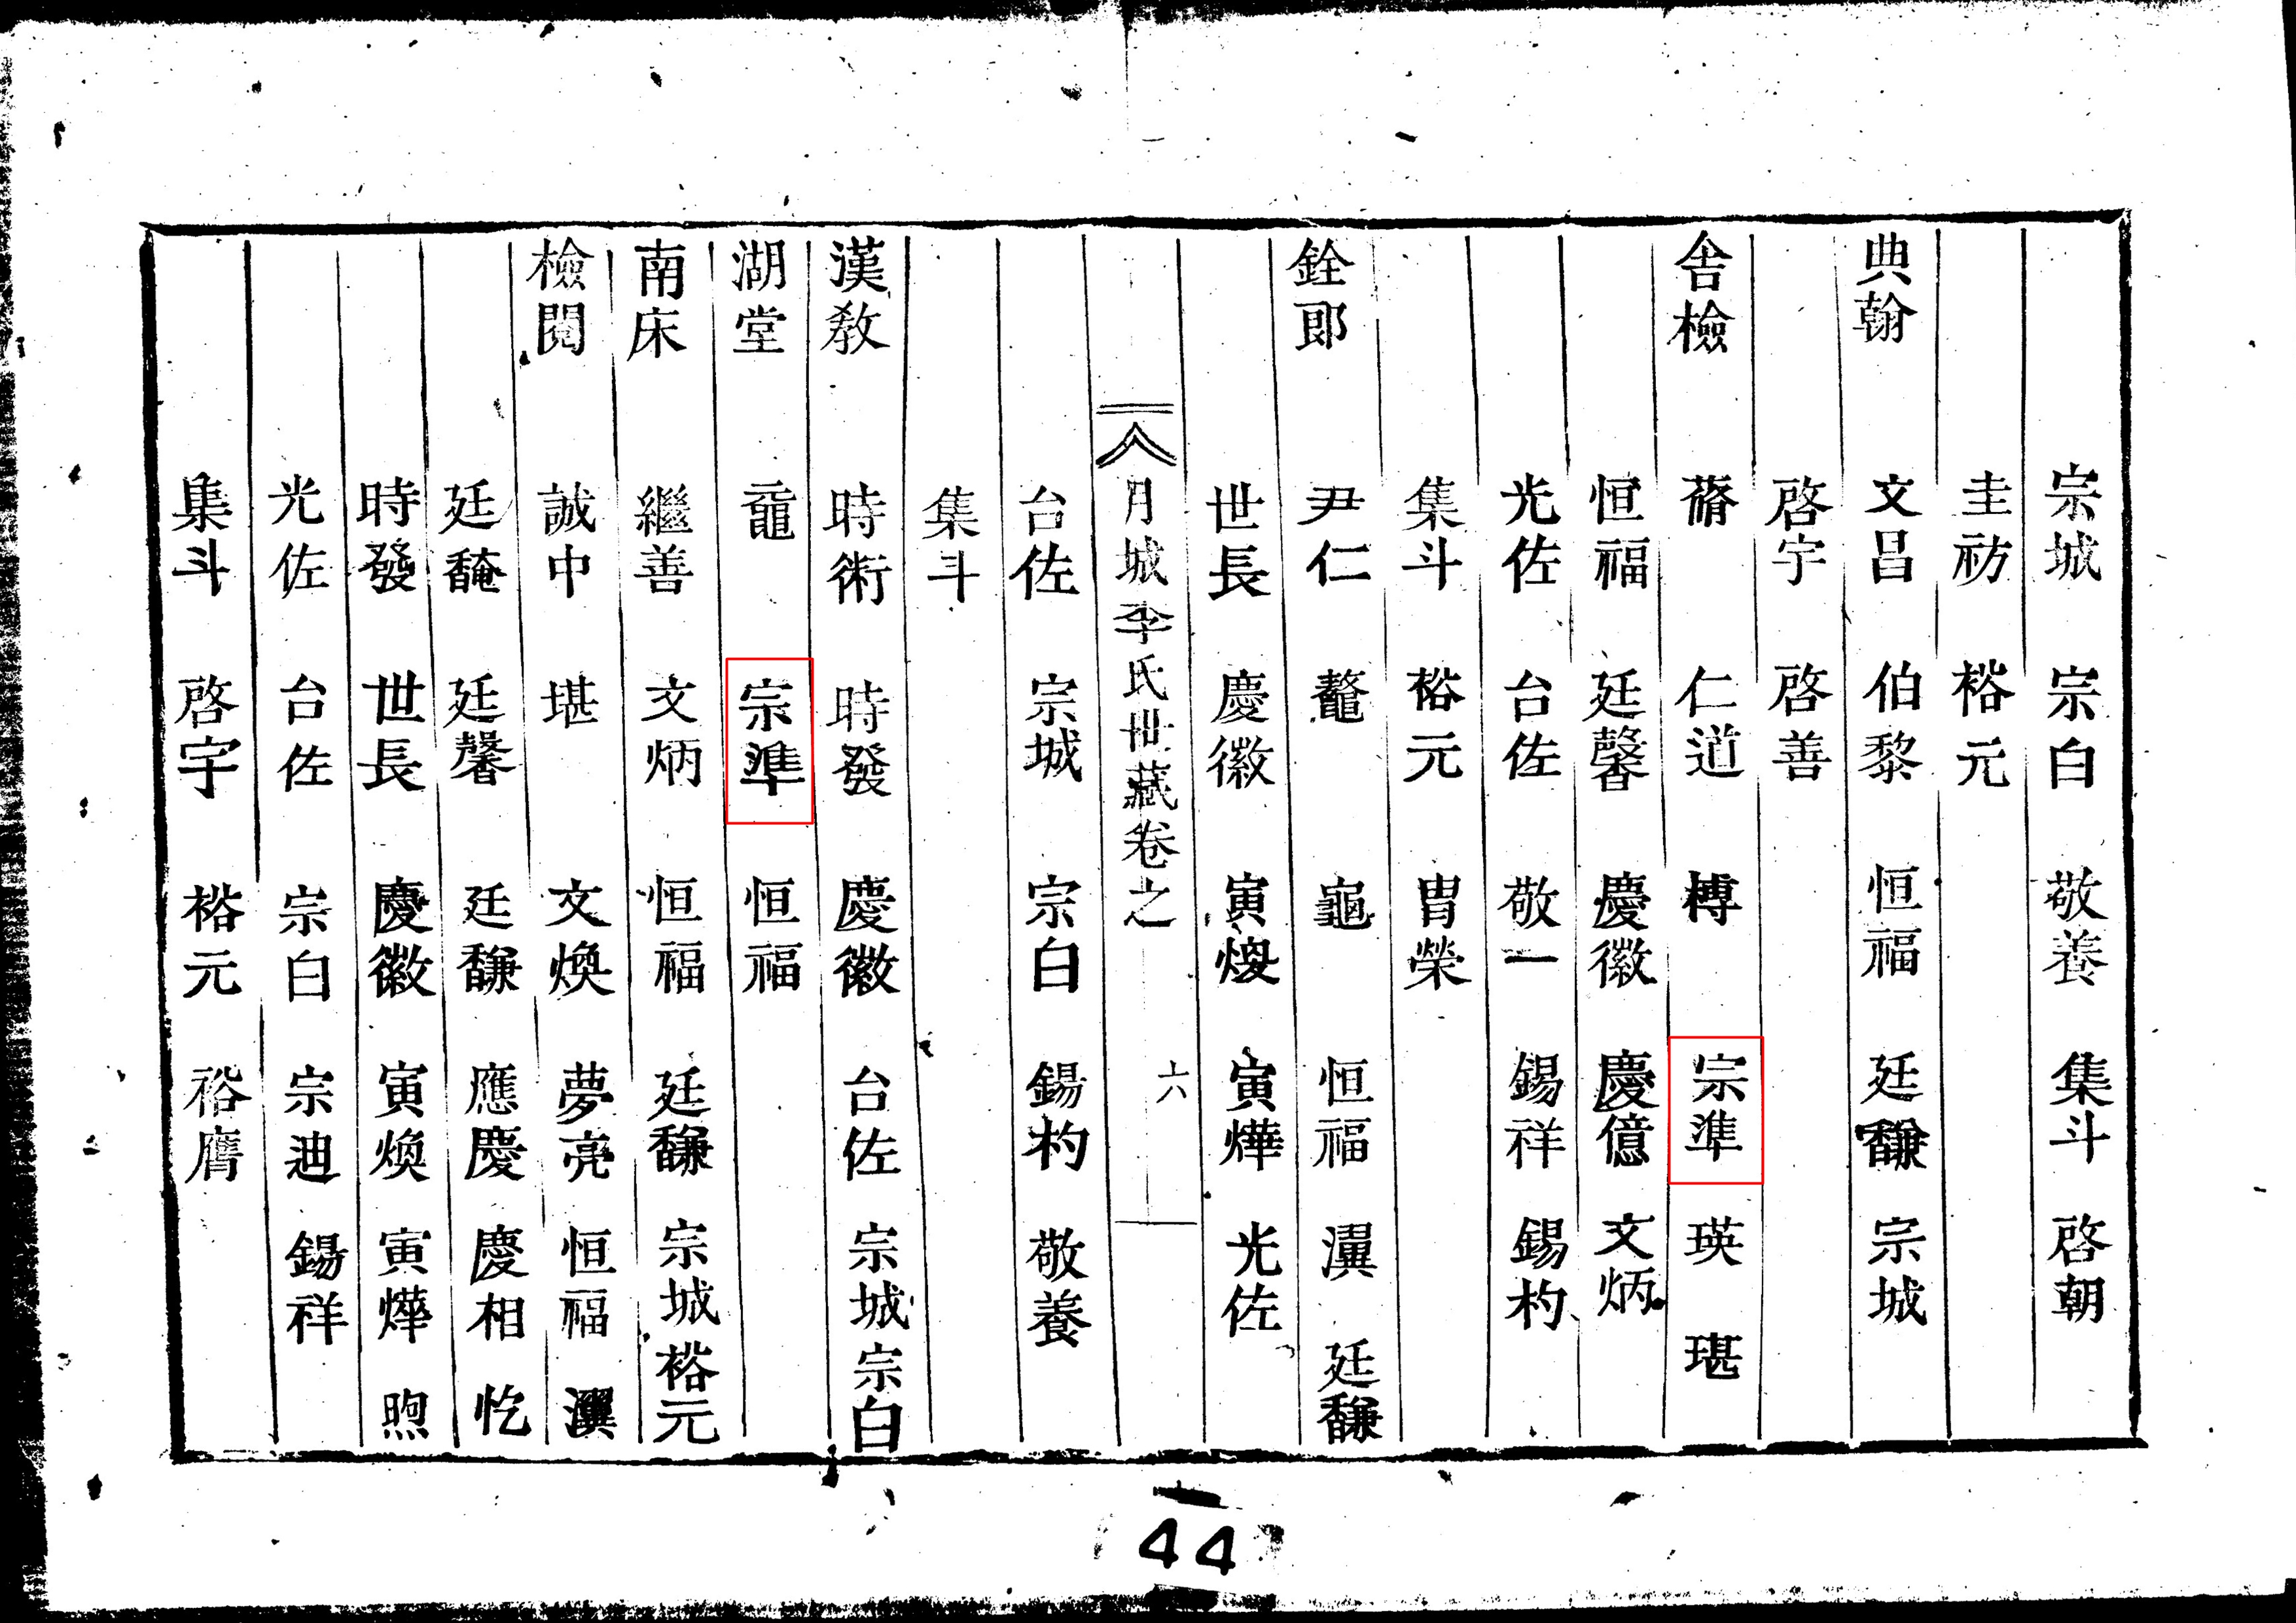 宗城 宗白 敬養 集斗 啓朝
圭祊 裕元
典翰 文昌 伯黎 恒福 廷馦 宗城
啓宇 啓善
舎檢 蓨 仁道 榑 宗準 瑛 堪
恒福 廷馨 慶徽 慶億 文炳
光佐 台佐 敬一 錫祥 錫杓
集斗 裕元 冑榮
銓郎 尹仁 鼇 龜 恒福 瀷 廷馦
世長 慶徽 寅煥 寅燁 光佐
月城李氏世藏卷之 六
台佐 宗城 宗白 錫杓 敬養
集斗
漢敎 時術 時發 慶徽 台佐 宗城 宗白
湖堂 黿 宗準 恒福
南床 繼善 文炳 恒福 廷馦 宗城 裕元
檢閱 誠中 堪 文煥 夢亮 恒福 瀷
廷馣 廷馨 廷馦 應慶 慶相 忔
時發 世長 慶徽 寅煥 寅燁 煦
光佐 台佐 宗白 宗迪 錫祥
集斗 啓宇 裕元 裕膺
44